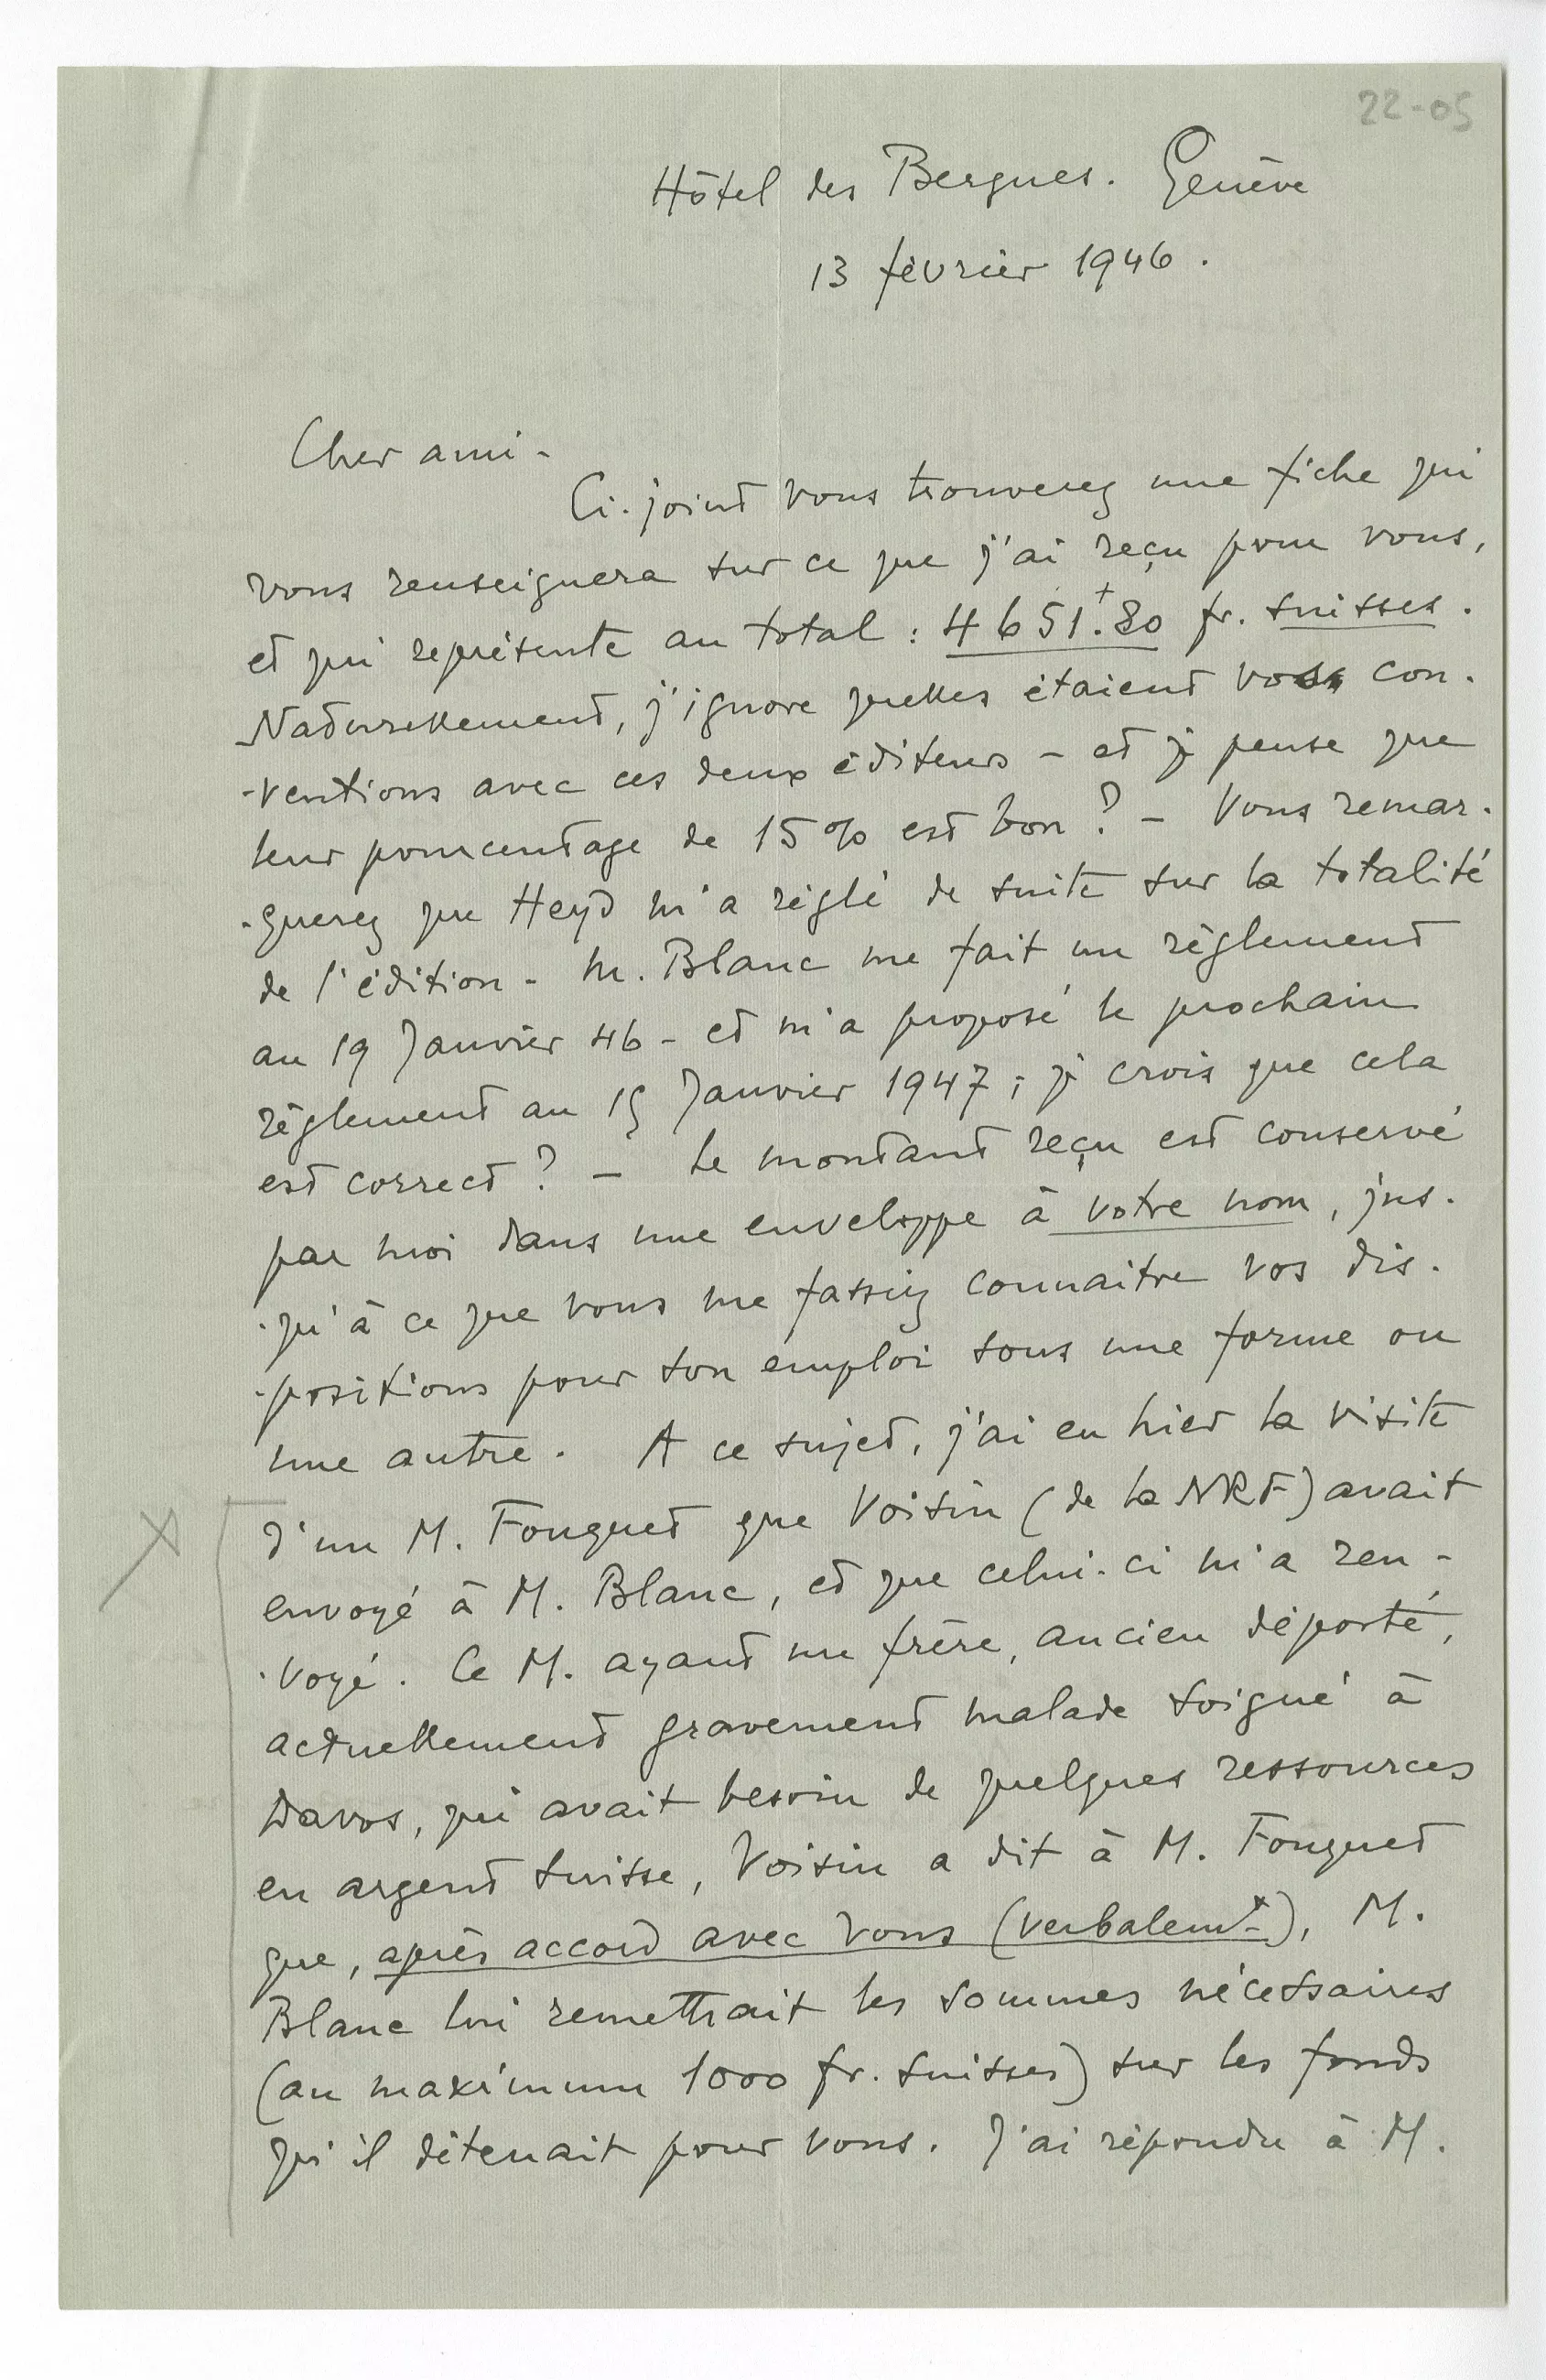 22-05
Hôtel des Bergues. Genève
13 février 1946.
Cher ami -
Ci-joint vous trouverez une fiche qui
vous renseignera sur ce que j'ai reçu pour vous,
et qui représente au total : 4651.80 fr. suisses.
Naturellement, j'ignore quelles étaient vos con-
-ventions avec ces deux éditeurs - et je pense que
leur pourcentage de 15% est bon ? - Vous remar-
-querez que Heyd m'a réglé de suite sur la totalité
de l'édition - M. Blanc me fait un règlement
au 19 Janvier 46 - et m'a proposé le prochain
règlement au 15 Janvier 1947 ; je crois que cela
est correct ? - Le montant reçu est conservé
par moi dans une enveloppe à votre nom, jus-
-qu'à ce que vous me fassiez connaitre vos dis-
-positions pour son emploi sous une forme ou
une autre. A ce sujet, j'ai eu hier la visite
d'un M. Fouquet que Voisin (de la NRF) avait
envoyé à M. Blanc, et que celui-ci m'a ren-
-voyé. Ce M. ayant un frère, ancien déporté,
actuellement gravement malade soigné à
Davos, qui avait besoin de quelques ressources
en argent suisse, Voisin a dit à M. Fouquet
que, après accord avec vous (verbalemt), M.
Blanc lui remettrait les sommes nécessaires
(au maximum 1000 fr. suisses) sur les fonds
qu'il détenait pour vous. J'ai répondu à M.